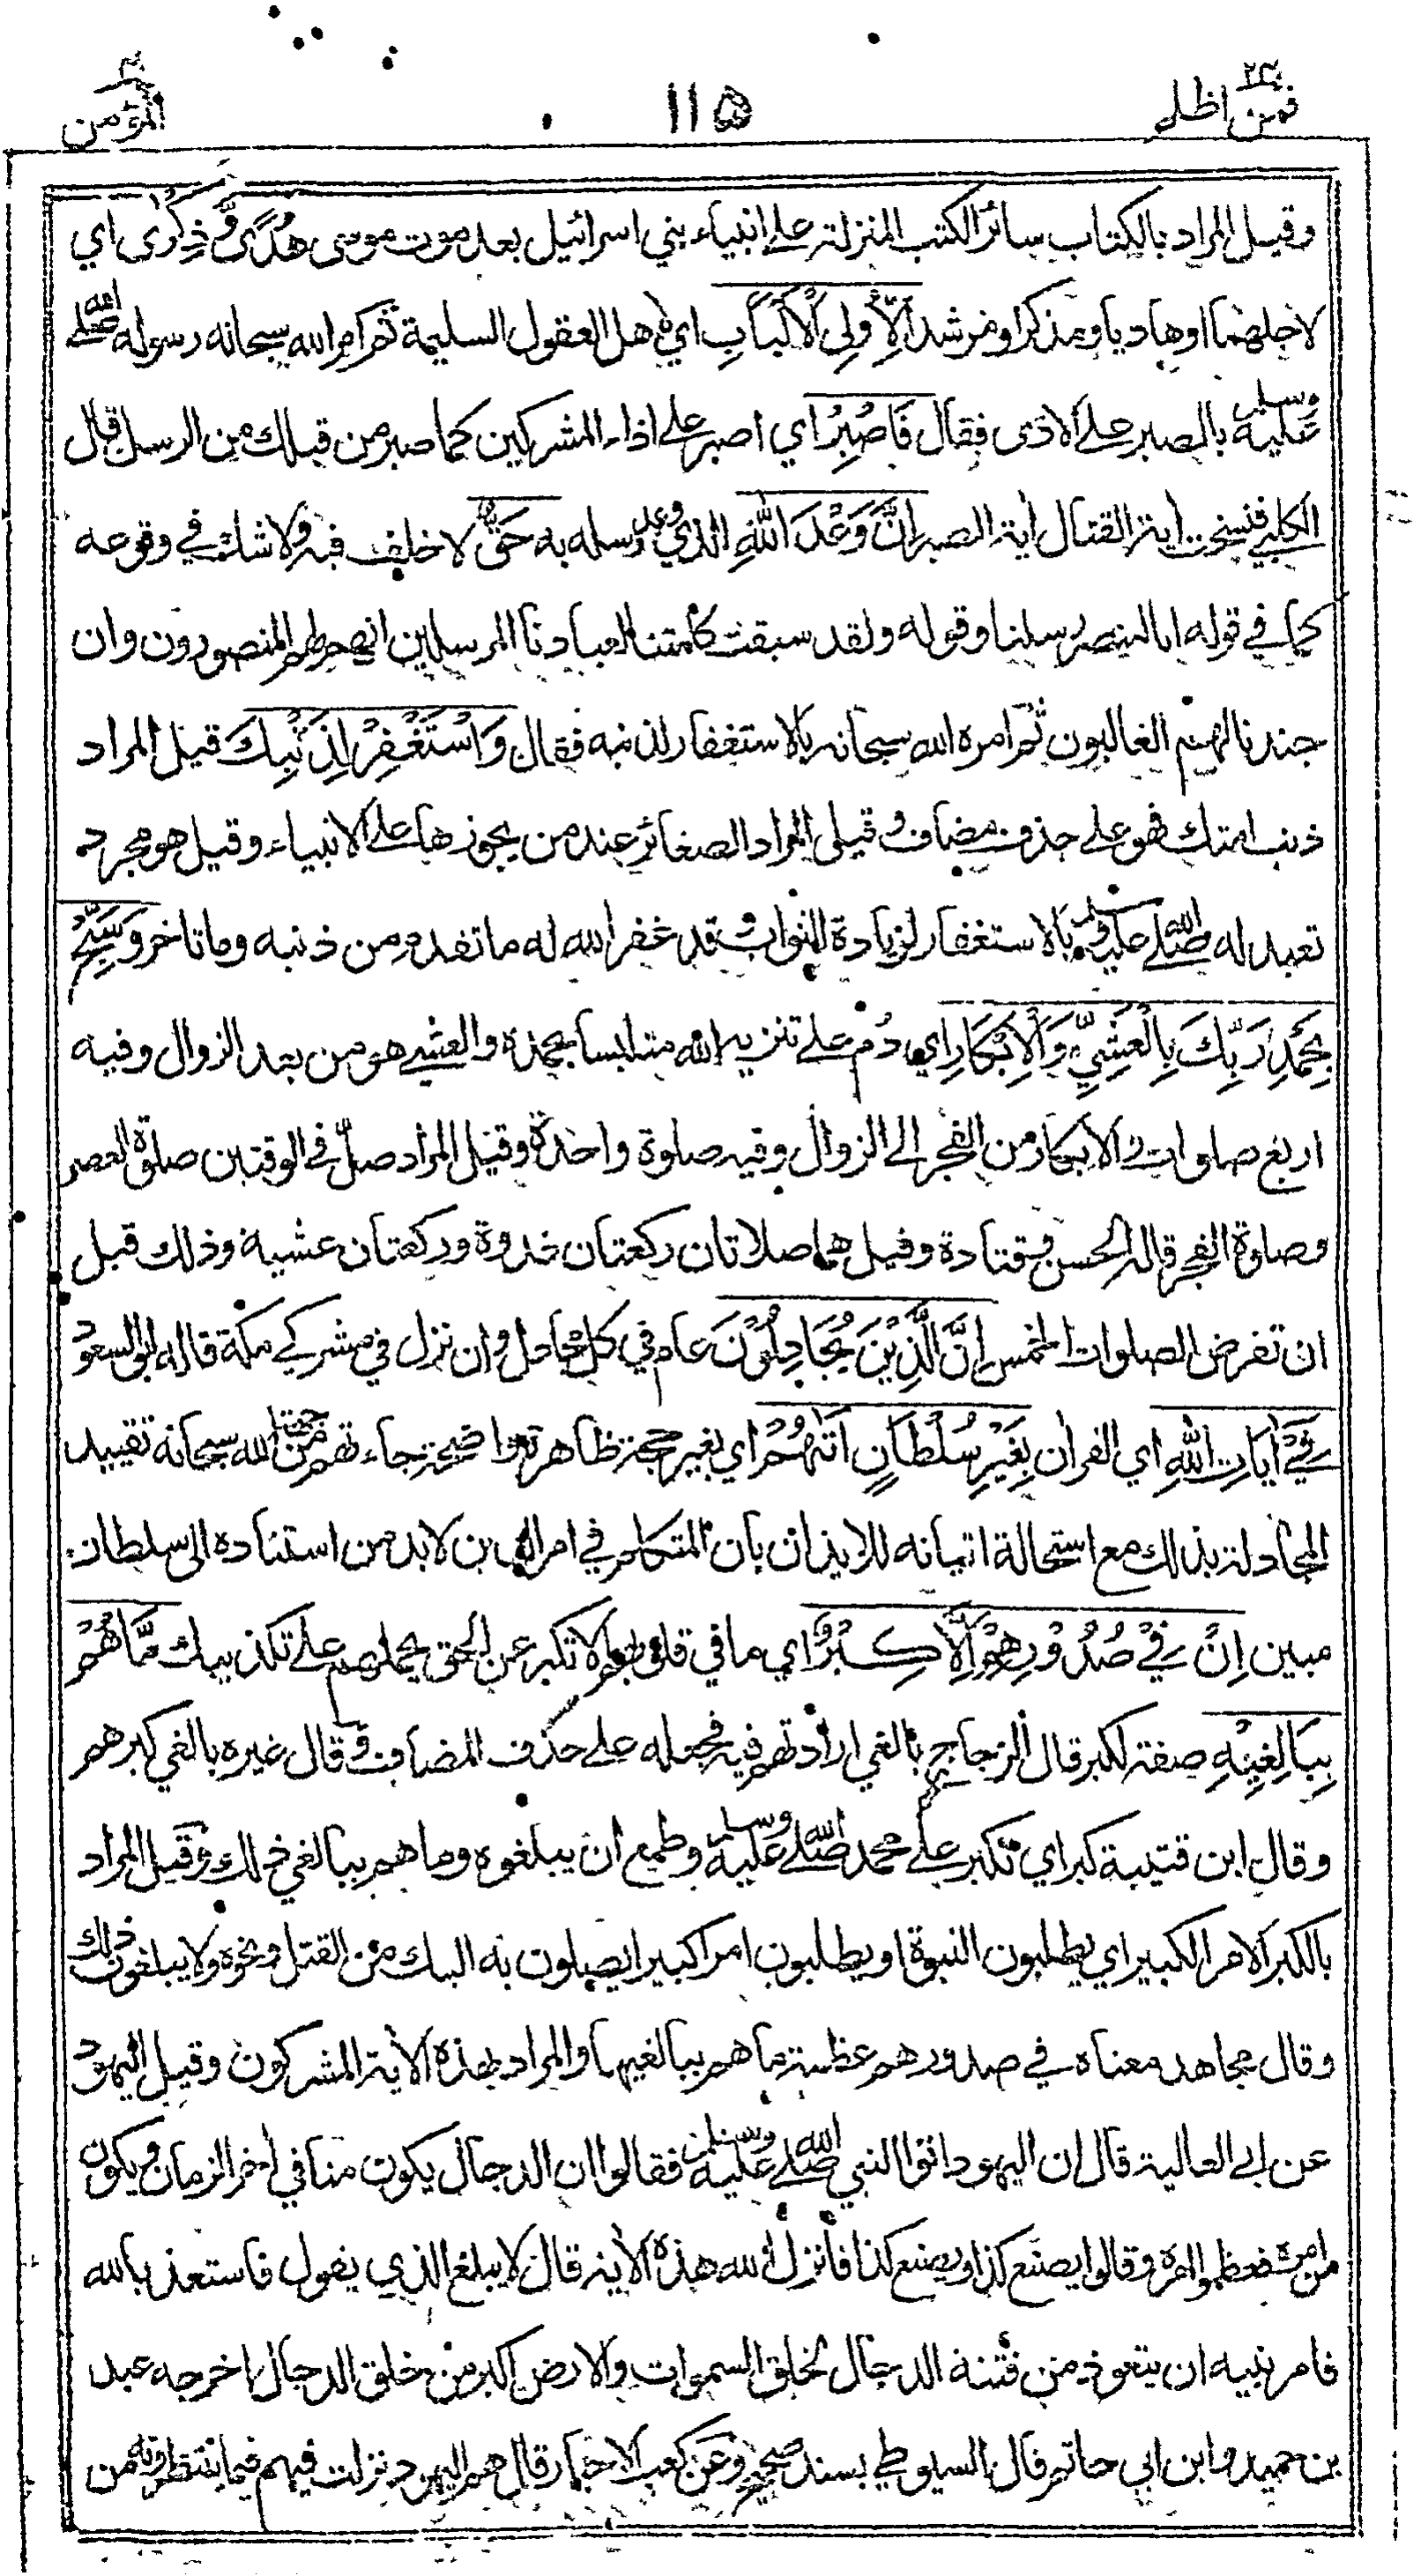 فمن اظلم ٢٤
١١٥
المؤمن ٤٠
وقيل المراد بالكتاب سائر الكتب المنزلة على انبياء بني اسرائيل بعد موت موسى هُدًى وَّذِكْرٰى اي
لاجلهما او هاديا ومذكرا ومرشدا لِأُولِى الْأَلْبَابِ اي لاهل العقول السليمة ثم امر الله سبحانه رسوله صلى الله
عليه وسلم بالصبر على الاذى فقال فَاصْبِرْ اي اصبر على اذاء المشركين كما صبر من قبلك من الرسل قال
الكلبي فنسخت اية القتال اية الصبر إِنَّ وَعْدَ اللّٰهِ الذي وعد رسله به حَقٌّ لا خلف فيه ولا شك في وقوعه
كما في قوله انا لننصر رسلنا وقوله ولقد سبقت كلمتنا لعبادنا المرسلين انهم لهم المنصورون وان
جندنا لهم الغالبون ثم امره الله سبحانه بالاستغفار لذنبه فقال وَاسْتَغْفِرْ لِذَنْبِكَ قيل المراد
ذنب امتك فهو على حذف مضاف وقيل المراد الصغائر عند من يجوزها على الانبياء وقيل هو مجرد
تعبد له صلى الله عليه وسلم بالاستغفار لزيادة الثواب وقد غفر الله له ما تقدم من ذنبه وما تاخر وَسَبِّحْ
بِحَمْدِ رَبِّكَ بِالْعَشِيِّ وَالْإِبْكَارِ اي دُم على تنزيه الله متلبسا بحمده والعشي هو من بعد الزوال وفيه
اربع صلوات والابكار من الفجر الى الزوال وفيه صلوة واحدة وقيل المراد صلّ في الوقتين صلوة العصر
وصلوة الفجر قاله الحسن وقتادة وقيل هما صلاتان ركعتان غدوة وركعتان عشية وذلك قبل
ان تفرض الصلوات الخمس إِنَّ الَّذِيْنَ يُجَادِلُوْنَ عام في كل مجادل وان نزل في مشركي مكة قاله ابو السعود
فِيْ اٰيَاتِ اللّٰهِ اي القران بِغَيْرِ سُلْطَانٍ اَتٰهُمْ اي بغير حجة ظاهرة واضحة جاءتهم من جهة الله سبحانه تقييد
المجادلة بذلك مع استحالة اتيانه للايذان بان المتكلم في امر الدين لابد من استناده الى سلطان
مبين إِنْ فِيْ صُدُوْرِهِمْ إِلَّا كِبْرٌ اي ما في قلوبهم الا تكبر عن الحق يحملهم على تكذيبك مَّا هُمْ
بِبَالِغِيْهِ صفة لكبر قال الزجاج بالغي ارادتهم فيه فجعله على حذف المضاف وقال غيره بالغي كبرهم
وقال ابن قتيبة كبر اي تكبر على محمد صلى الله عليه وسلم وطمع ان يبلغوه وما هم ببالغي ذلك وقيل المراد
بالكبر الامر الكبير اي يطلبون النبوة او يطلبون امرا كبيرا يصلون به اليك من القتل ونحوه ولا يبلغون ذلك
وقال مجاهد معناه في صدورهم عظمة ما هم ببالغيها والمراد بهذه الأية المشركون وقيل اليهود
عن ابي العالية قال ان اليهود اتوا النبي صلى الله عليه وسلم فقالوا ان الدجال يكون منا في أخر الزمان ويكون
من امره فعظموا امره وقالوا يصنع كذا ويصنع كذا فانزل الله هذه الأية قال لا يبلغ الذي يقول فاستعذ بالله
فامر نبيه ان يتعوذ من فتنة الدجال لخلق السموات والارض اكبر من خلق الدجال اخرجه عبد
بن حميد وابن ابي حاتم قال السيوطي بسند صحيح وعن كعب الاحبار قال هم اليهود نزلت فيهم فيما ينتظرونه من